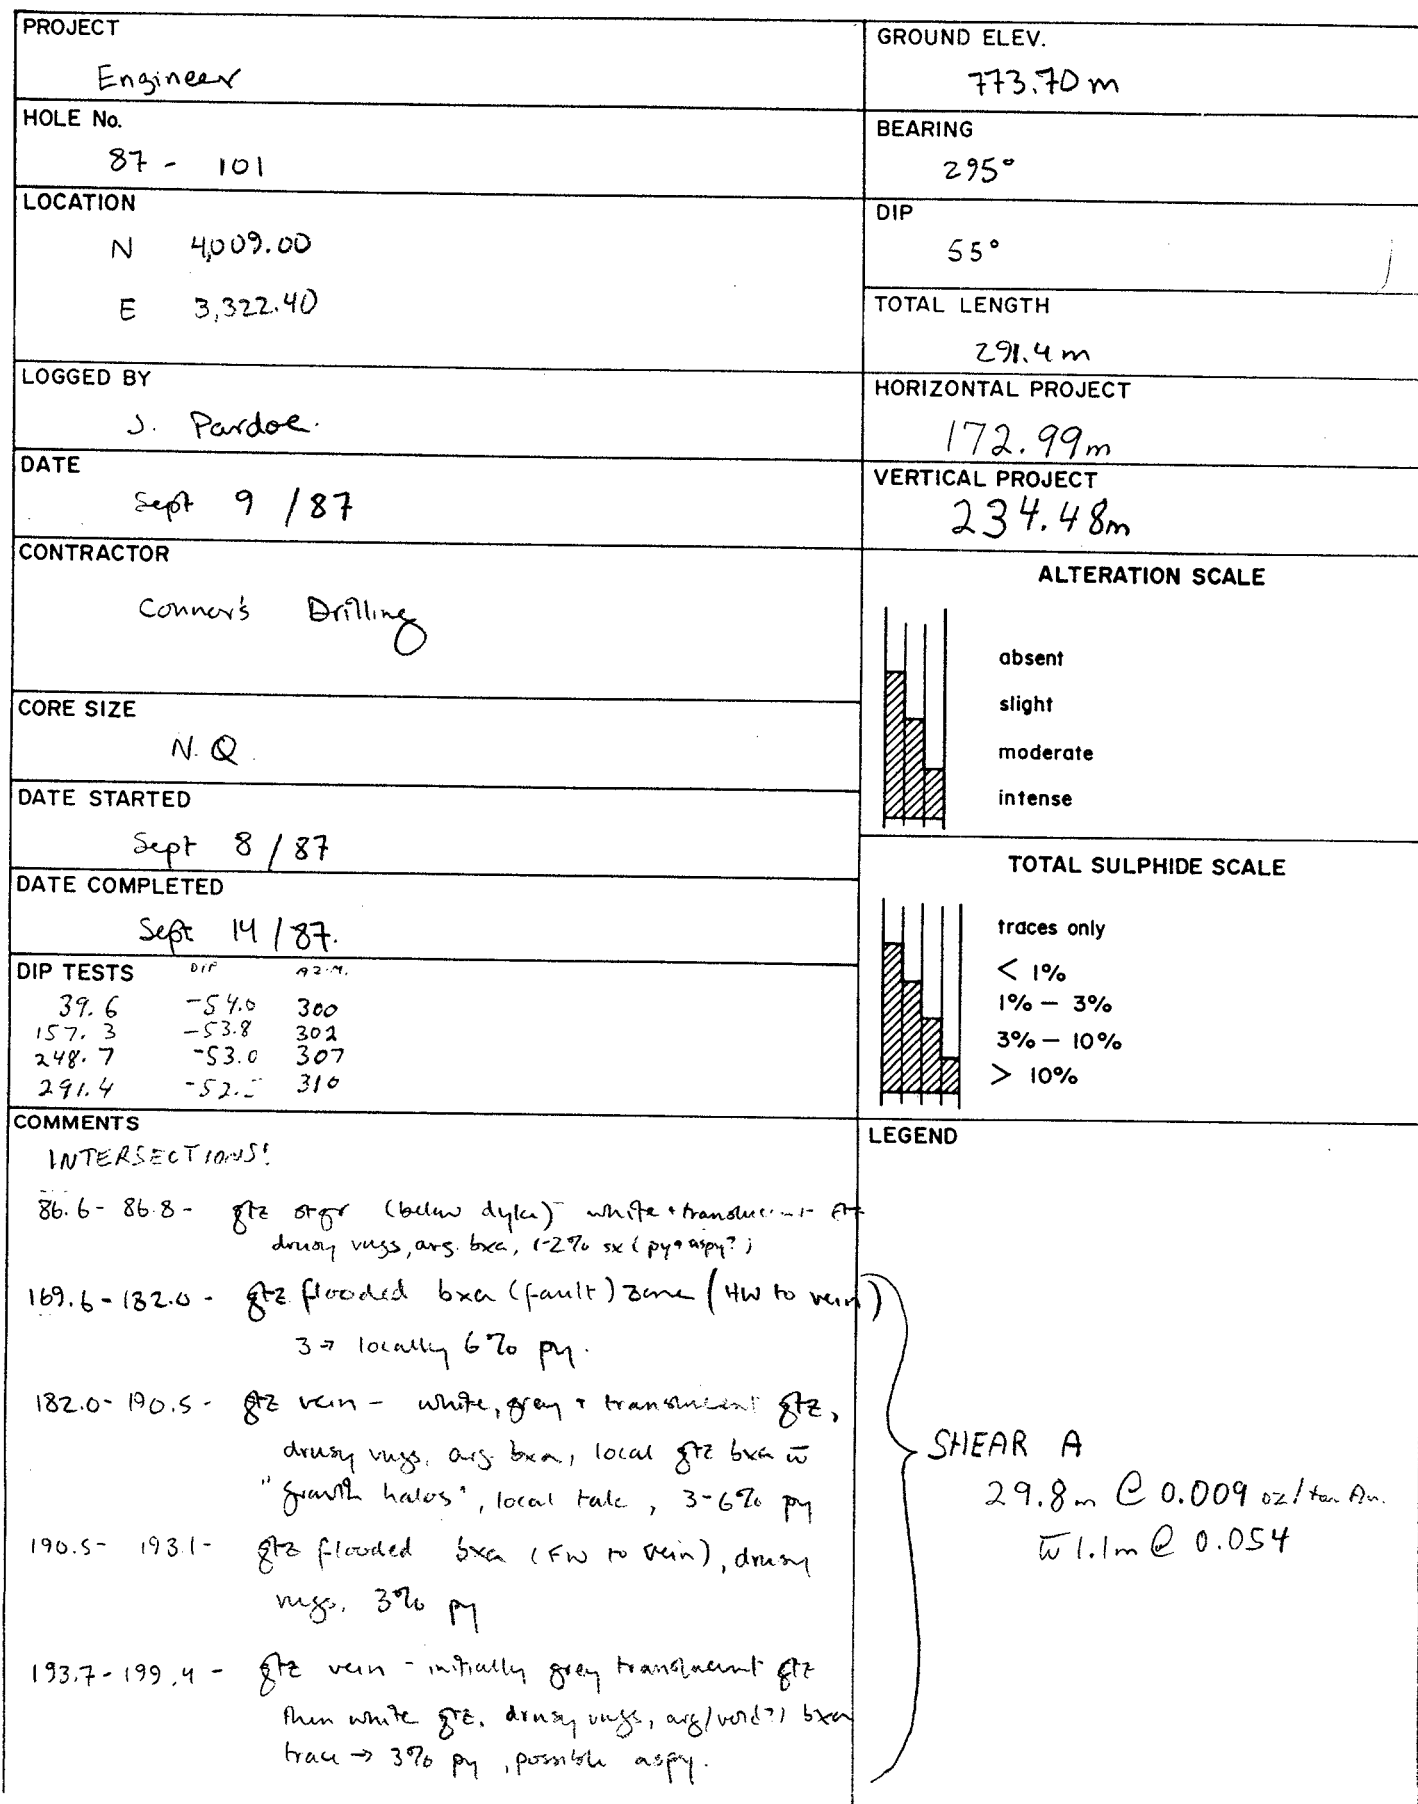 PROJECT
Engineer
HOLE No.
87 - 101
LOCATION
N 4,009.00
E 3,322.40
LOGGED BY
J. Pardoe.
DATE
Sept 9 /87
CONTRACTOR
Connor's Drilling
CORE SIZE
N.Q.
DATE STARTED
Sept 8 / 87
DATE COMPLETED
Sept 14 / 87.
DIP TESTS DIP AZM.
39.6 -54.0 300
157.3 -53.8 302
248.7 -53.0 307
291.4 -52. 310
COMMENTS
INTERSECTIONS:
86.6 - 86.8 - qtz strgr (below dyke) - white + translucent qtz
drusy vugs, arg. bxa, 1-2% sx (py + aspy?)
169.6 - 182.0 - qtz flooded bxa (fault) zone (HW to vein)
3 → locally 6% py.
182.0 - 190.5 - qtz vein - white, grey + translucent qtz,
drusy vugs, arg. bxa, local qtz bxa w̄
"growth halos", local talc, 3-6% py
190.5 - 193.1 - qtz flooded bxa (FW to vein), drusy
vugs, 3% py
193.7 - 199.4 - qtz vein - initially grey translucent qtz
then white qtz, drusy vugs, arg/ bxa
trace → 3% py, possible aspy.
GROUND ELEV.
773.70 m
BEARING
295°
DIP
55°
TOTAL LENGTH
291.4 m
HORIZONTAL PROJECT
172.99m
VERTICAL PROJECT
234.48m
ALTERATION SCALE
absent
slight
moderate
intense
TOTAL SULPHIDE SCALE
traces only
< 1%
1% - 3%
3% - 10%
> 10%
LEGEND
SHEAR A
29.8m @ 0.009 oz/ton Au.
w̄ 1.1m @ 0.054